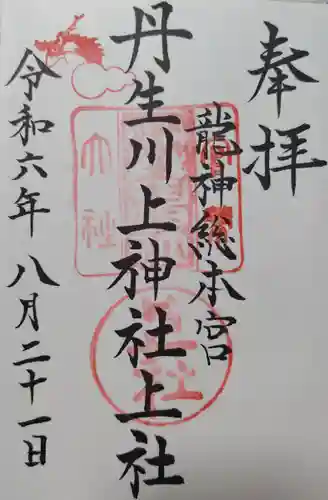 奉拝
龍神総本宮
丹生川上神社上社
令和六年八月二十一日